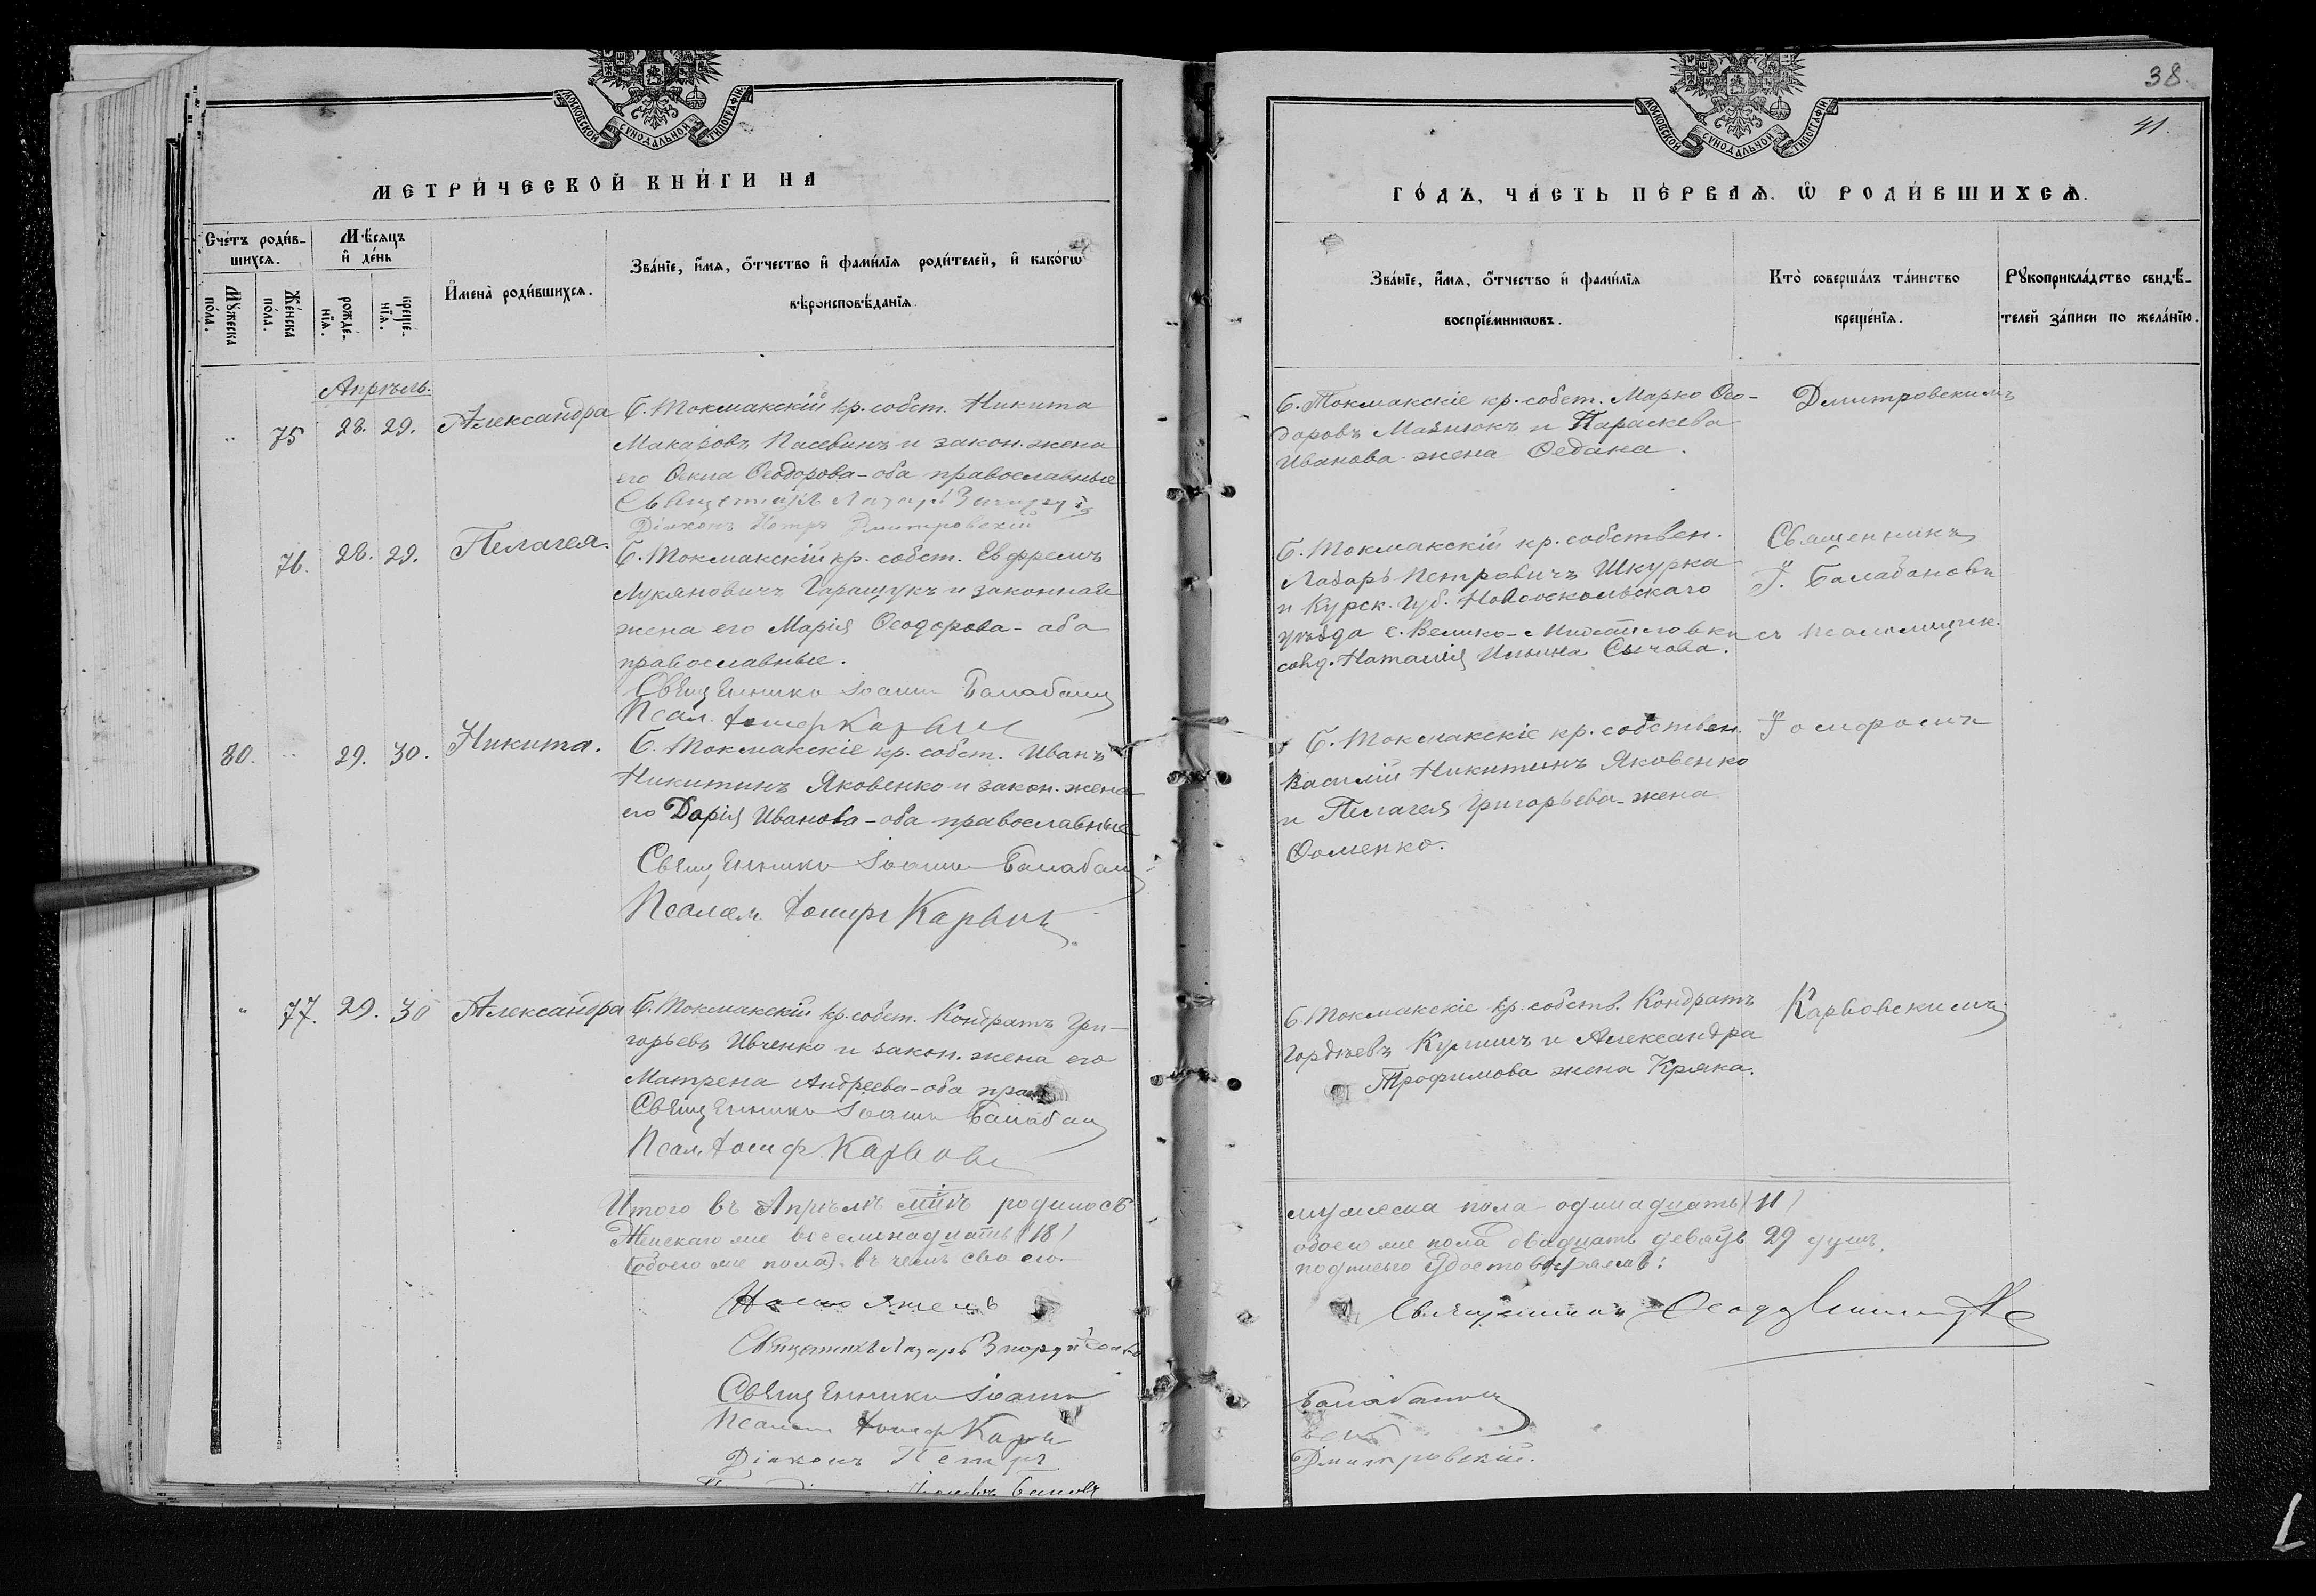 МОСКОВСКОЙ СѴНОДАЛЬНОЙ ТИПОГРАФІИ
МЕТРИ́ЧЕСКОЙ КНИ́ГИ НА
Сче́тъ роди́в-
шихсѧ.
Мѣ́сѧцъ
и҆ де́нь
И҆мена̀ роди́вшихсѧ.
Зва́нїе, и҆́мѧ, ѻ҆́тчество и҆ фами́лїѧ роди́телей, и҆ како́гѡ
вѣроисповѣ́данїѧ.
Мꙋ́жеска
по́ла.
Же́нска
по́ла.
рожде́-
нїѧ.
креще́-
нїѧ.
Апрѣль.
75 28. 29. Александра
Б. Токмакскій кр. собст. Никита
Макаровъ и закон. жена
его Ѳекла Ѳеодорова - оба православные
Діаконъ Петръ Дмитровскій
76. 28. 29. Пелагея.
Б. Токмакскій кр. собст. Евфремъ
Лукяновичъ Гаращукъ и законная
жена его Марія Ѳеодорова - оба
православные.
Священникъ Іоаннъ Балабан
Псал. Іосиф
80. 29. 30. Никита.
Б. Токмакскіе кр. собст. Иванъ
Никитинъ Яковенко и закон. жена
его Дарія Иванова - оба православные
Священникъ Іоаннъ Балабан
Псалом. Іосифъ
77. 29. 30 Александра
Б. Токмакскій кр. собст. Кондратъ Гри-
горьевъ Ивченко и закон. жена его
Матрена Андреева - оба прав
Священникъ Іоаннъ Балабан
Псал. Іосиф
Итого въ Апрѣлѣ родилось
Женскаго же восемнадцать (18)
(обоего же пола). въ чемъ
Настоятель
Священникъ Лазарь
Священникъ Іоаннъ
Іосиф
Діаконъ Петръ
38
41.
МОСКОВСКОЙ СѴНОДАЛЬНОЙ ТИПОГРАФІИ
ГО́ДЪ, ЧА́СТЬ ПЕ́РВАѦ. Ѡ҆ РОДИ́ВШИХСѦ.
Зва́нїе, и҆́мѧ, ѻ҆́тчество и҆ фами́лїѧ
воспрїе́мникѡвъ.
Кто̀ соверша́лъ та́инство
креще́нїѧ.
Рꙋкоприкла́дство свидѣ́-
телей за́писи по жела́нїю.
Б. Токмакскіе кр. собст. Марко Ѳео-
доровъ и Параскева
Иванова жена
Дмитровскимъ
Б. Токмакскій кр. собствен.
Лазарь Петровичъ Шкурка
и Курск. Губ. Новооскольскаго
уѣзда с. Велико-
Наталія Ильина Сычова.
Священникъ
І. Балабановъ
съ псаломщик.
Б. Токмакскіе кр. собствен.
Василій Никитинъ Яковенко
и Пелагея Григорьева жена
Ѳоменко.
Іосифомъ
Б. Токмакскіе кр. собств. Кондратъ
Гордѣевъ и Александра
Трофимова жена Кряка.
Карвовскимъ
мужеска пола - одинадцать (11)
обоего же пола двадцать девять 29 душъ,
подписью удостовѣряемъ:
Священникъ
Балабанов
Дмитровскій.